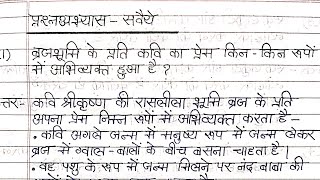 प्रश्नअभ्यास - सवैये
1) ब्रजभूमि के प्रति कवि का प्रेम किन - किन रूपों
में अभिव्यक्त हुआ है ?
त्तर:- कवि श्रीकृष्ण की रासलीला भूमि ब्रज के प्रति
अपना प्रेम निम्न रूपों में अभिव्यक्त करता है -
• कवि अगले जन्म में मनुष्य रूप में जन्म लेकर
ब्रज में ग्वाल - बालों के बीच बसना चाहता है।
• वह पशु के रूप में जन्म मिलने पर नंद बाबा की